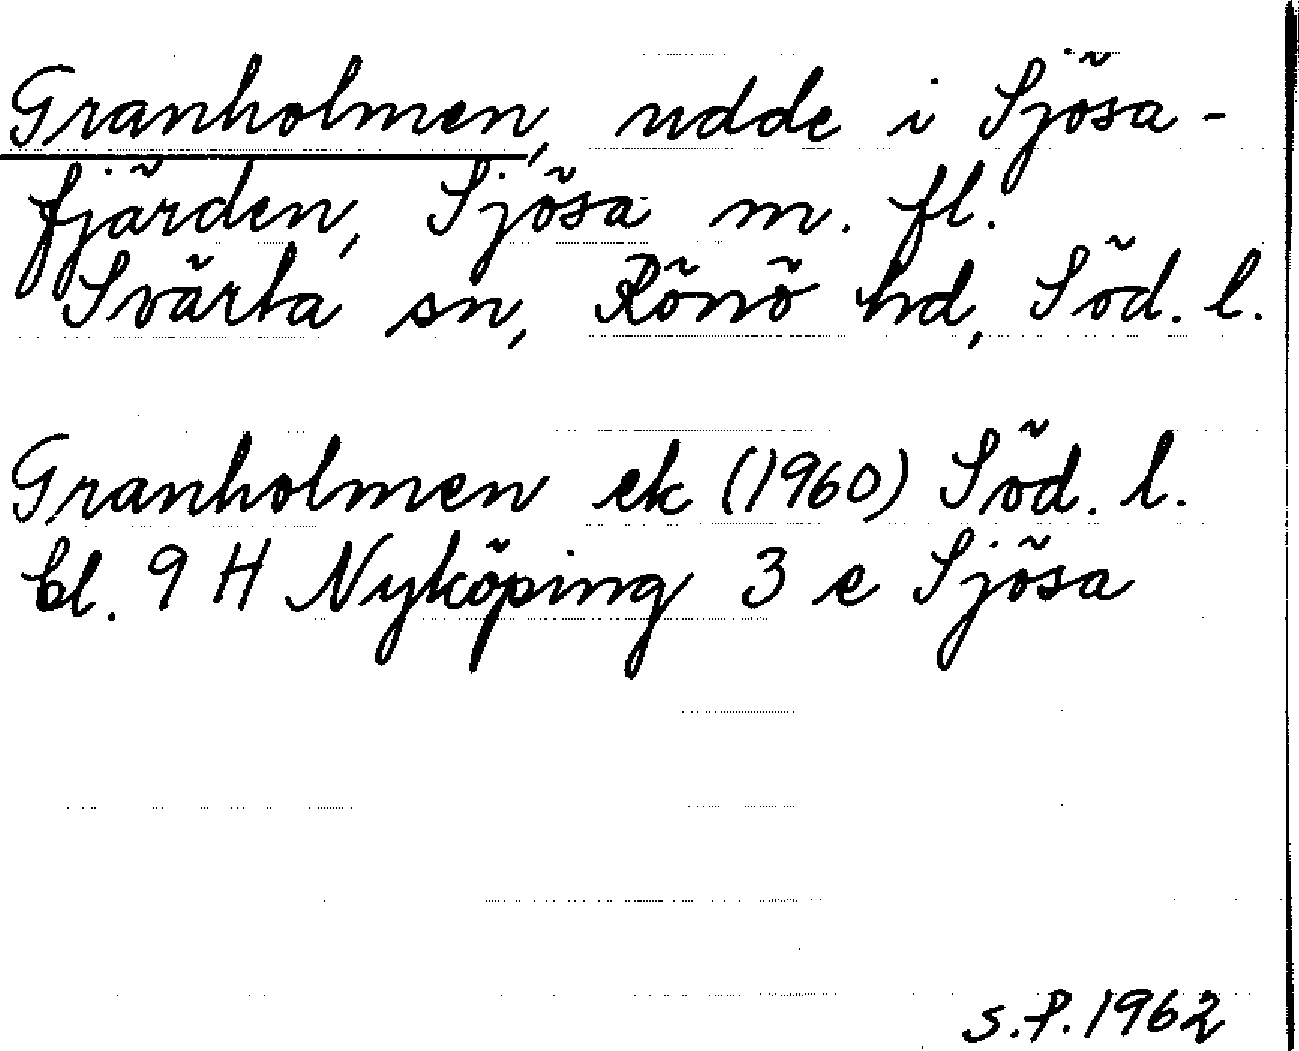 Granholmen, udde i Sjösa-
fjärden, Sjösa m. fl.
Svärta sn, Rönö hd, Söd. l.
Granholmen ek (1960) Söd. l.
bl. 9 H Nyköping 3 e Sjösa
S.P. 1962